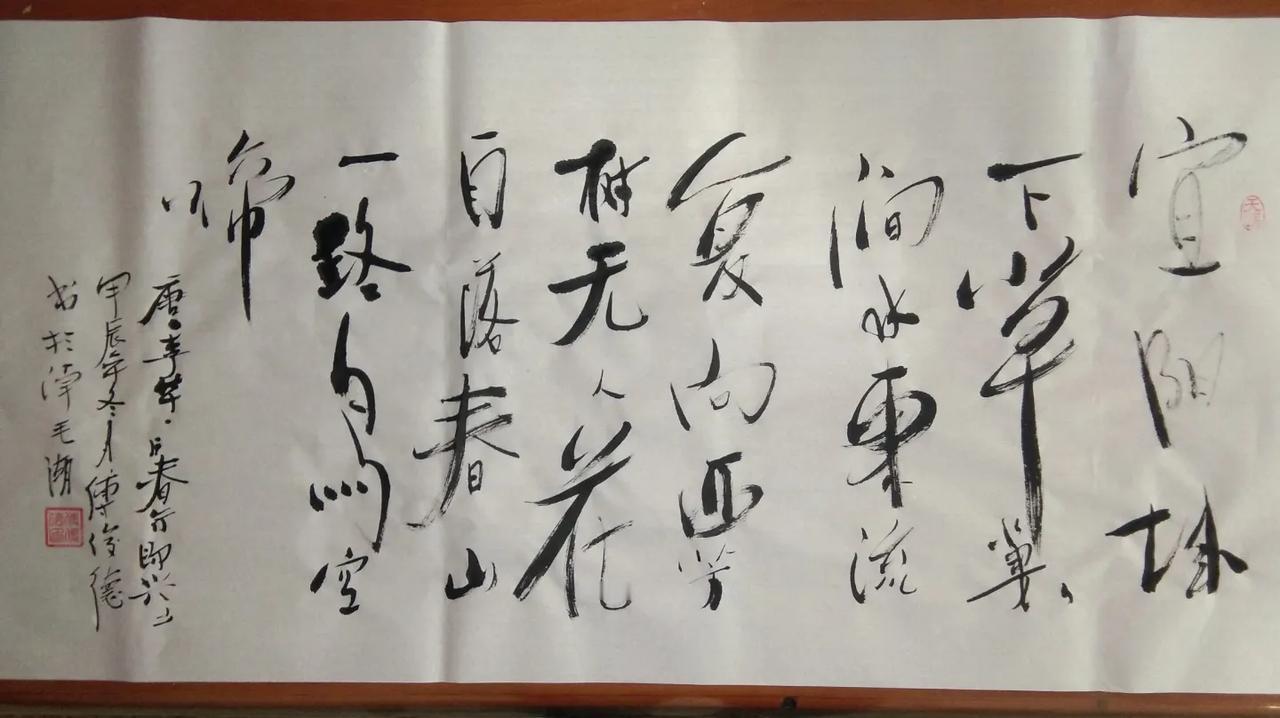 宜阳城
下草萋〻
涧水东流
复向西芳
树无人花
自落春山
一路鸟空
啼
唐·李华·春行即兴
甲辰年冬月傅俊德
书於